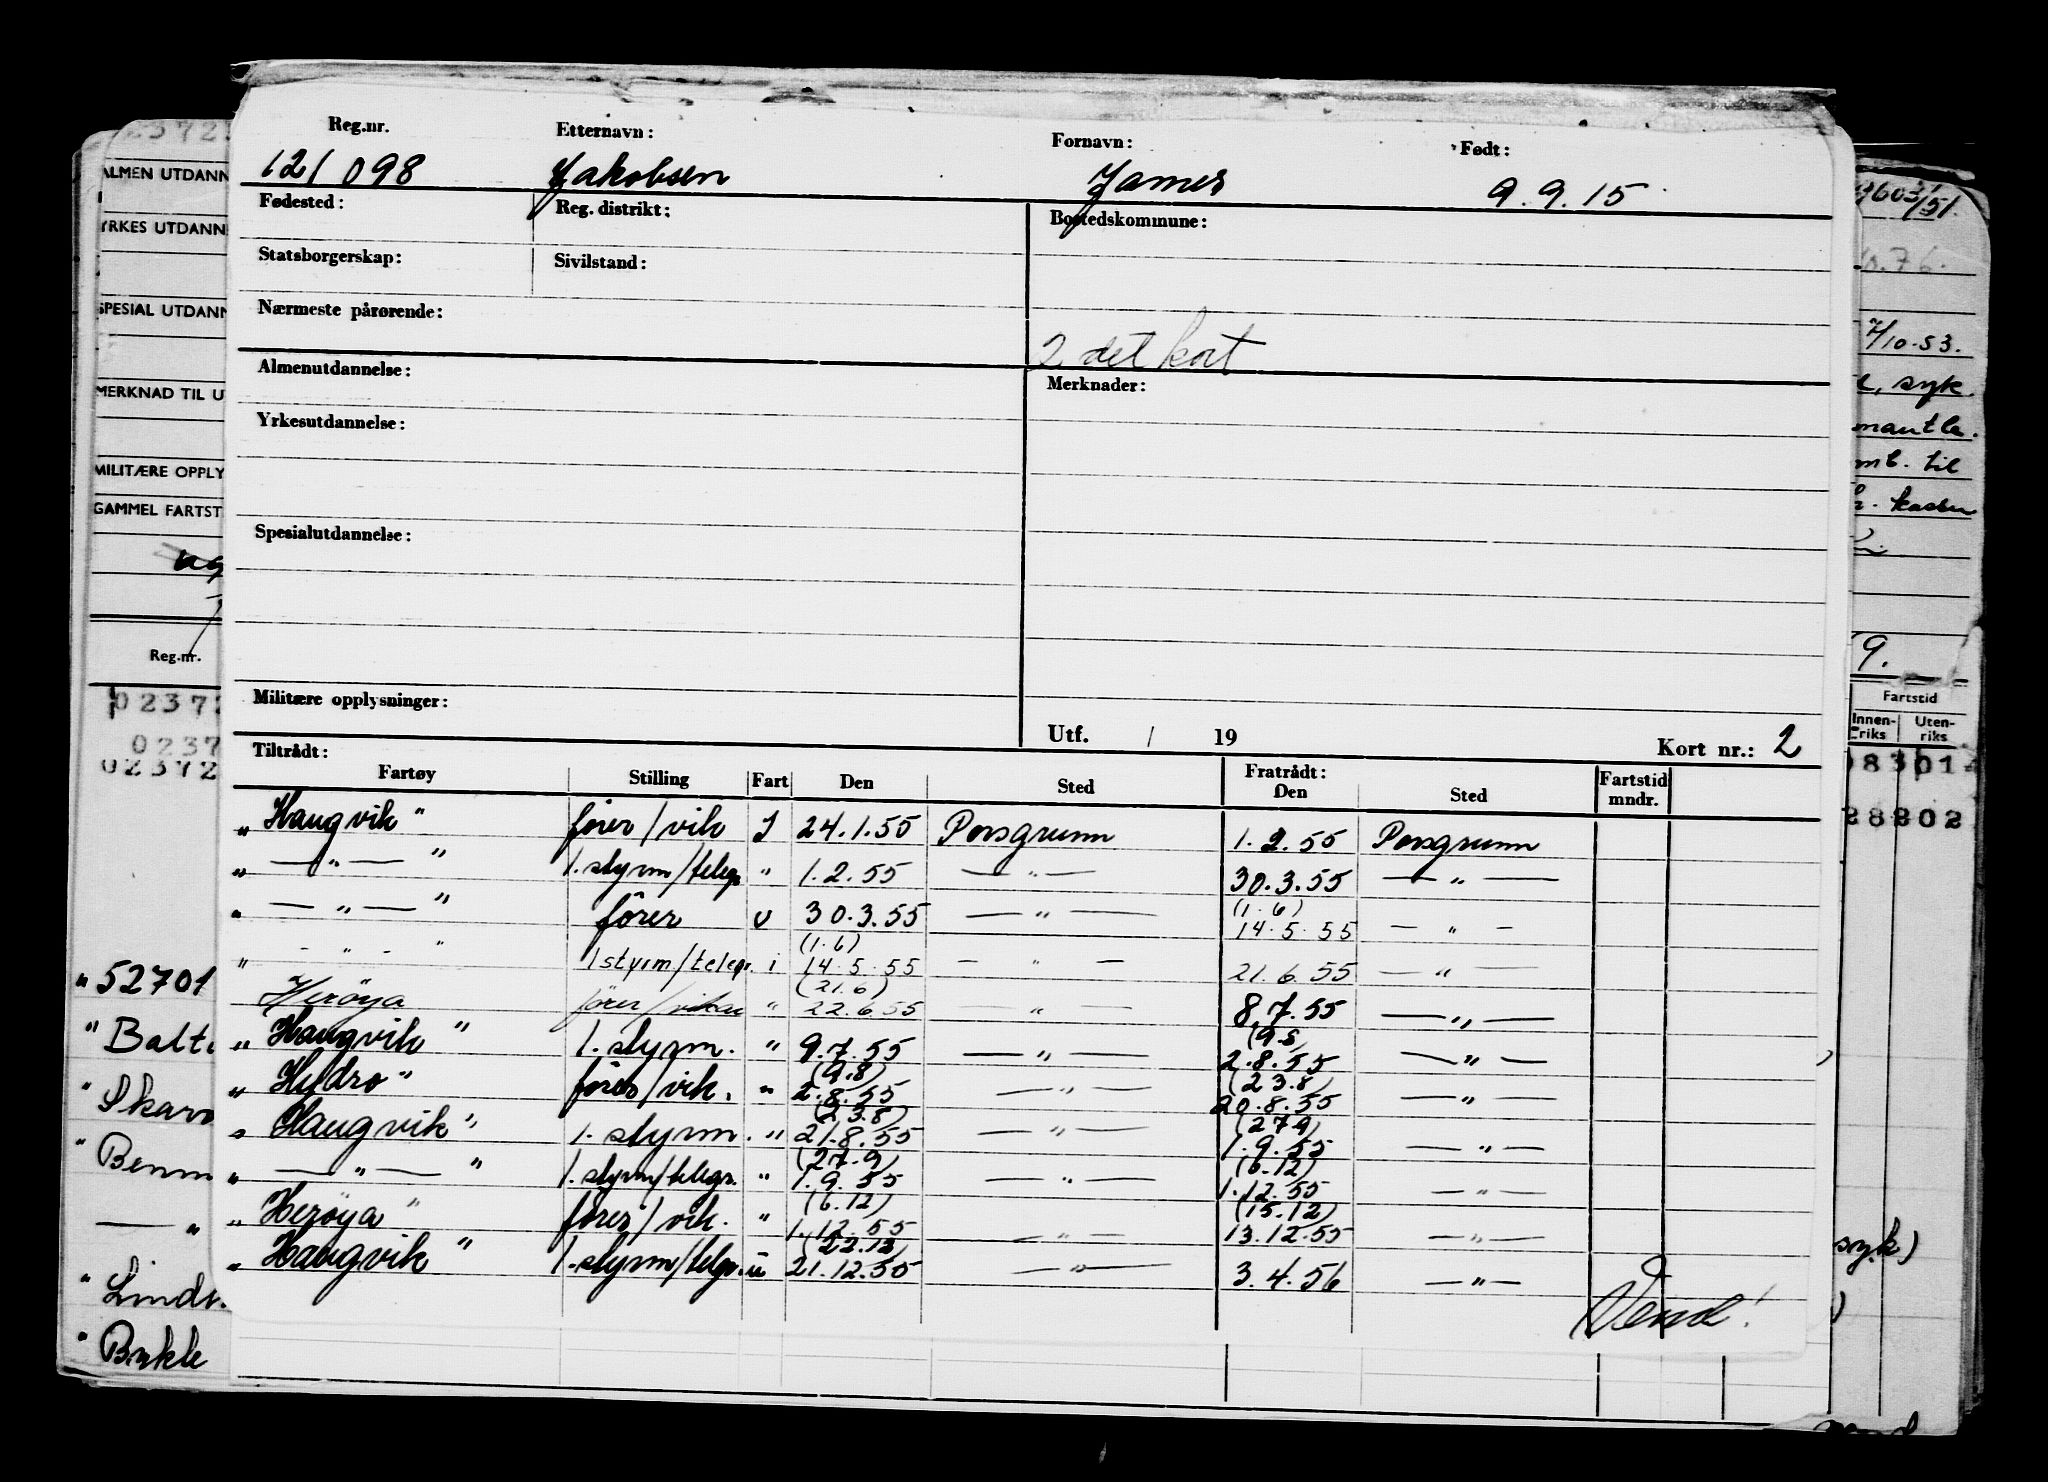 Reg.nr. Etternavn: Fornavn: Født:
121098 Jakobsen James 9.9.15
Fødested: Reg. distrikt: Bostedskommune:
Statsborgerskap: Sivilstand:
Nærmeste pårørende:
2 det kort
Almenutdannelse: Merknader:
Yrkesutdannelse:
Spesialutdannelse:
Militære opplysninger:
Utf. / 19 Kort nr.: 2
Tiltrådt: Fratrådt:
Fartøy Stilling Fart Den Sted Den Sted Fartstid mndr.
„ Haugvik " fører/vik I 24.1.55 Porsgrunn 1.2.55 Porsgrunn
„ — " — " 1. styrm/telegr " 1.2.55 — " — 30.3.55 — " —
" — " — " fører U 30.3.55 — " — (1.6) 14.5.55 — " —
" - " - " 1 styrm/telegr. i (1.6) 14.5.55 — " — 21.6.55 — " —
Herøya fører/vikar " (21.6) 22.6.55 — " — 8.7.55 — " —
„ Haugvik " 1. styrm. " 9.7.55 — " — (9.8) 2.8.55 — " —
„ Hydro " fører/vik. " (9.8) 2.8.55 — " — (23.8) 20.8.55 — " —
" Haugvik " 1. styrm. " (23.8) 21.8.55 — " — (27.9) 1.9.55 — " —
" — " — " 1. styrm/telegr. " (27.9) 1.9.55 — " — (6.12) 1.12.55 — " —
" Herøya " fører/vik. " (6.12) 1.12.55 — " — (15.12) 13.12.55 — " —
" Haugvik " 1. styrm/telgr. u (22.12) 21.12.55 — " — 3.4.56 — " —
Vend!
ALMEN UTDANN
YRKES UTDANN
SPESIAL UTDANN
MERKNAD TIL U
MILITÆRE OPPLY
GAMMEL FARTST
Reg.nr.
02372
0237
02372
" 52701
" Balt
" Skar
" Benn
— "
" Lind
" Bykle
603/51.
7/10.53.
syk.
til
9.
Fartstid
Innen- Uten-
riks riks
8301
28202
syk)